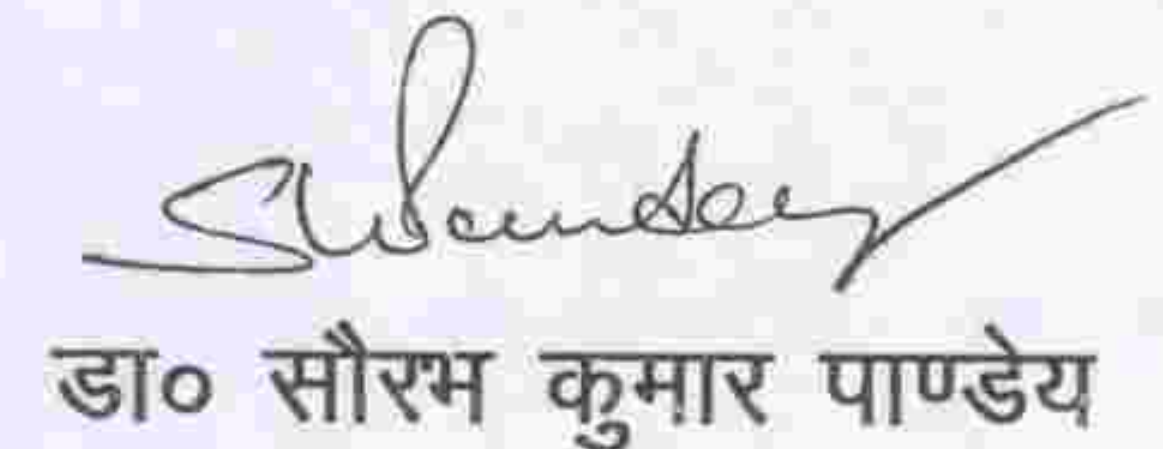 डा० सौरभ कुमार पाण्डेय